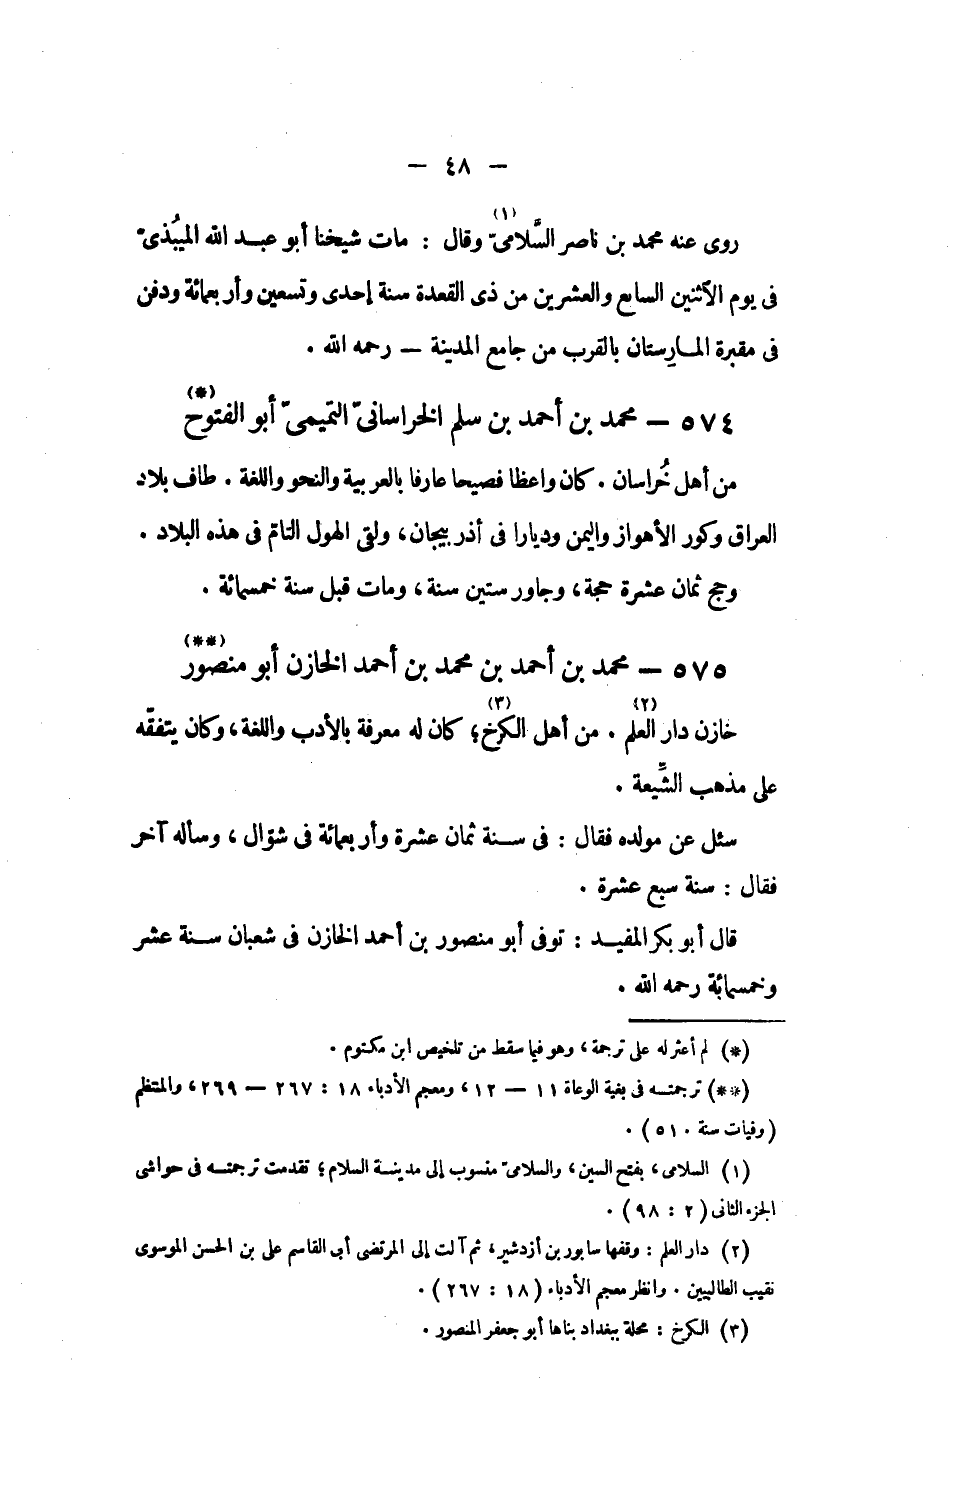 — ٤٨ —
روى عنه محمد بن ناصر السَّلامىّ (١) وقال : مات شيخنا أبو عبد الله الميبُذىّ
فى يوم الآثنين السابع والعشرين من ذى القعدة سنة إحدى وتسعين وأربعمائة ودفن
فى مقبرة المارِستان بالقرب من جامع المدينة — رحمه الله .
٥٧٤ — محمد بن أحمد بن سلم الخراسانىّ التميمىّ أبو الفتوح (*)
من أهل خُراسان . كان واعظا فصيحا عارفا بالعربية والنحو واللغة . طاف بلاد
العراق وكور الأهواز واليمن وديارا فى أذربيجان ، ولقى الهول التامّ فى هذه البلاد .
وحج ثمان عشرة حجة ، وجاور ستين سنة ، ومات قبل سنة خمسمائة .
٥٧٥ — محمد بن أحمد بن محمد بن أحمد الخازن أبو منصور (**)
خازن دار العلم (٢) . من أهل الكرخ (٣) ؛ كان له معرفة بالأدب واللغة ، وكان يتفقّه
على مذهب الشِّيعة .
سئل عن مولده فقال : فى سنة ثمان عشرة وأربعمائة فى شوّال ، وسأله آخر
فقال : سنة سبع عشرة .
قال أبو بكر المفيد : توفى أبو منصور بن أحمد الخازن فى شعبان سنة عشر
وخمسمائة رحمه الله .
(*) لم أعثر له على ترجمة ، وهو فيما سقط من تلخيص ابن مكتوم .
(**) ترجمته فى بغية الوعاة ١١ — ١٢ ، ومعجم الأدباء ١٨ : ٢٦٧ — ٢٦٩ ، والمنتظم
(وفيات سنة ٥١٠) .
(١) السلامى ، بفتح السين ، والسلامىّ منسوب إلى مدينة السلام ؛ تقدمت ترجمته فى حواشى
الجزء الثانى (٢ : ٩٨) .
(٢) دار العلم : وقفها سابور بن أزدشير ، ثم آلت إلى المرتضى أبى القاسم على بن الحسن الموسوى
نقيب الطالبيين . وانظر معجم الأدباء (١٨ : ٢٦٧) .
(٣) الكرخ : محلة ببغداد بناها أبو جعفر المنصور .